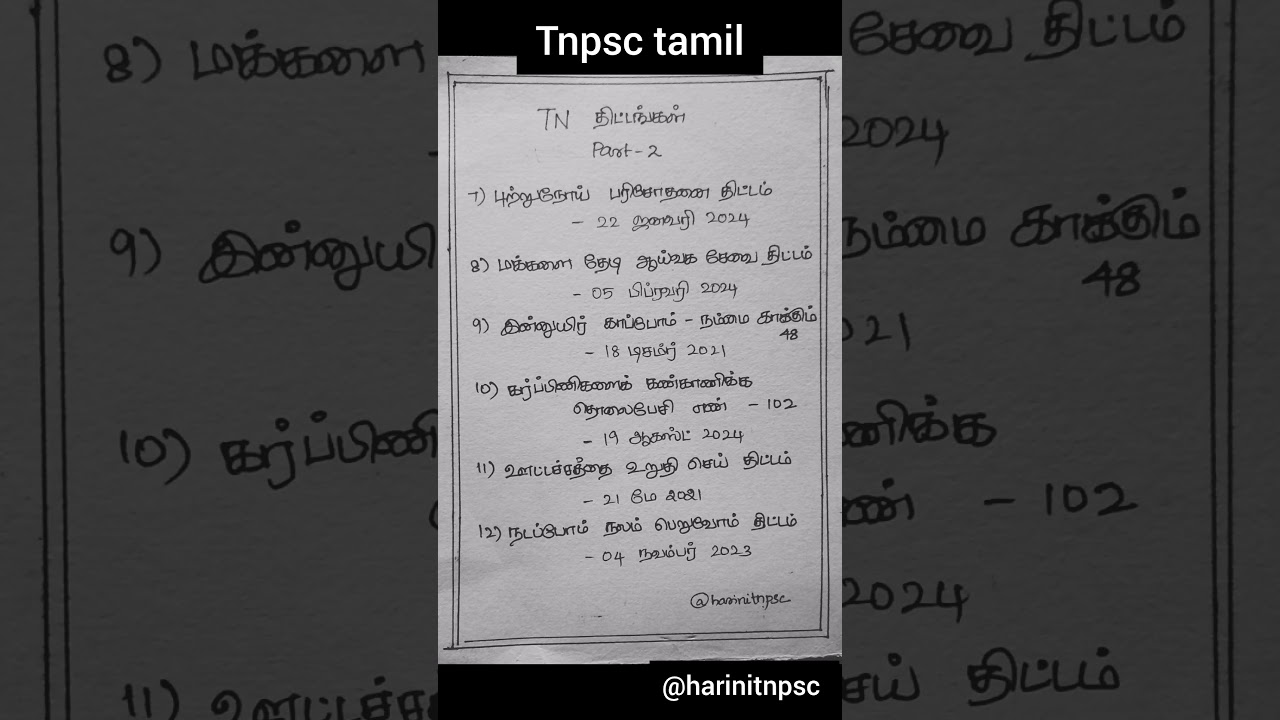 Tnpsc tamil
TN திட்டங்கள்
Part-2
7) புற்றுநோய் பரிசோதனை திட்டம்
- 22 ஜனவரி 2024
8) மக்களை தேடி ஆய்வக சேவை திட்டம்
- 05 பிப்ரவரி 2024
9) இன்னுயிர் காப்போம் - நம்மை காக்கும்
48
- 18 டிசம்பர் 2021
10) கர்ப்பிணிகளைக் கண்காணிக்க
தொலைபேசி எண் - 102
- 19 ஆகஸ்ட் 2024
11) ஊட்டச்சத்தை உறுதி செய் திட்டம்
- 21 மே 2021
12) நடப்போம் நலம் பெறுவோம் திட்டம்
- 04 நவம்பர் 2023
@harinitnpsc
@harinitnpsc